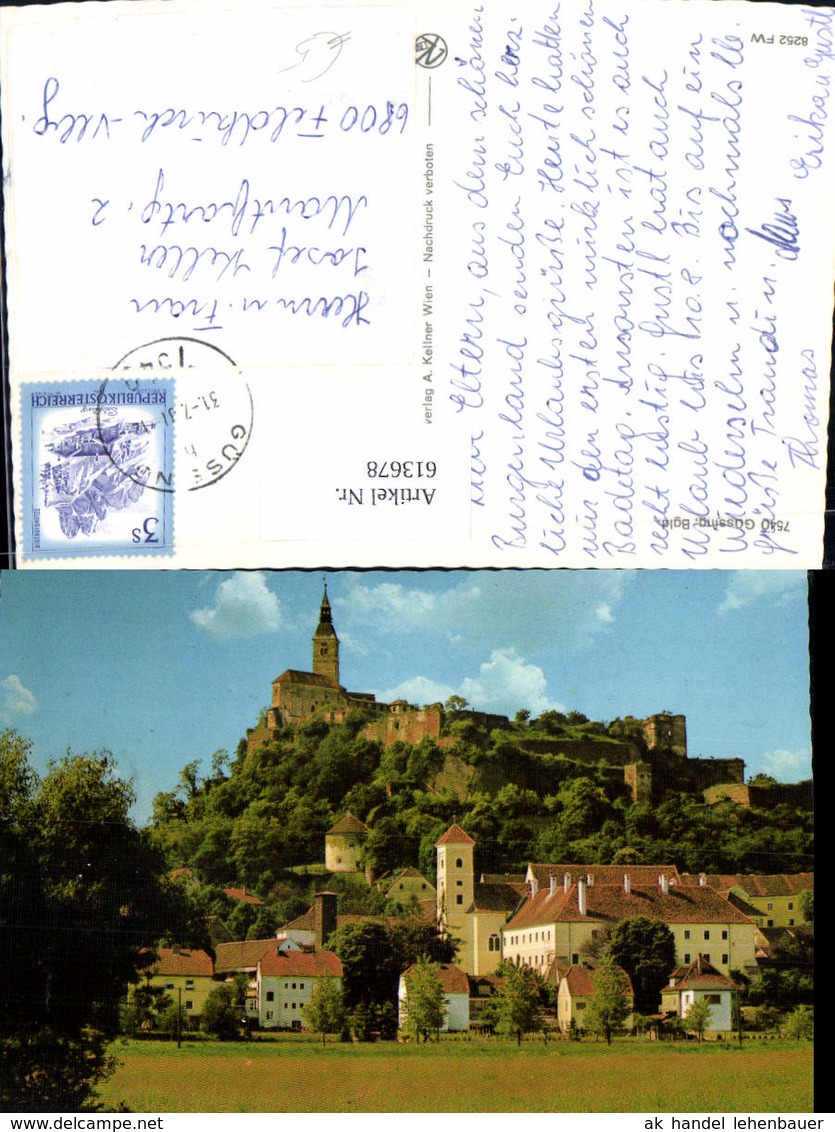 Liebe Eltern, aus dem schönen
Burgenland senden Euch herz-
liche Urlaubsgrüße. Heute hatten
wir den ersten wirklich schönen
Badetag. Ansonsten ist es auch
recht lustig. Gustl hat auch
Urlaub bis Frei. Bis auf ein
Wiedersehn u. nochmals lb.
Grüße Traudi u. Klaus
Thomas Erika u. Gustl
8252 FW
7540 Güssing, Bgld.
verlag A. Kellner Wien – Nachdruck verboten
Herrn u. Frau
Josef Keller
2
6800 Feldkirch
Artikel Nr.
613678
REPUBLIK ÖSTERREICH
3 S
GÜSSING
7540
ak handel lehenbauer